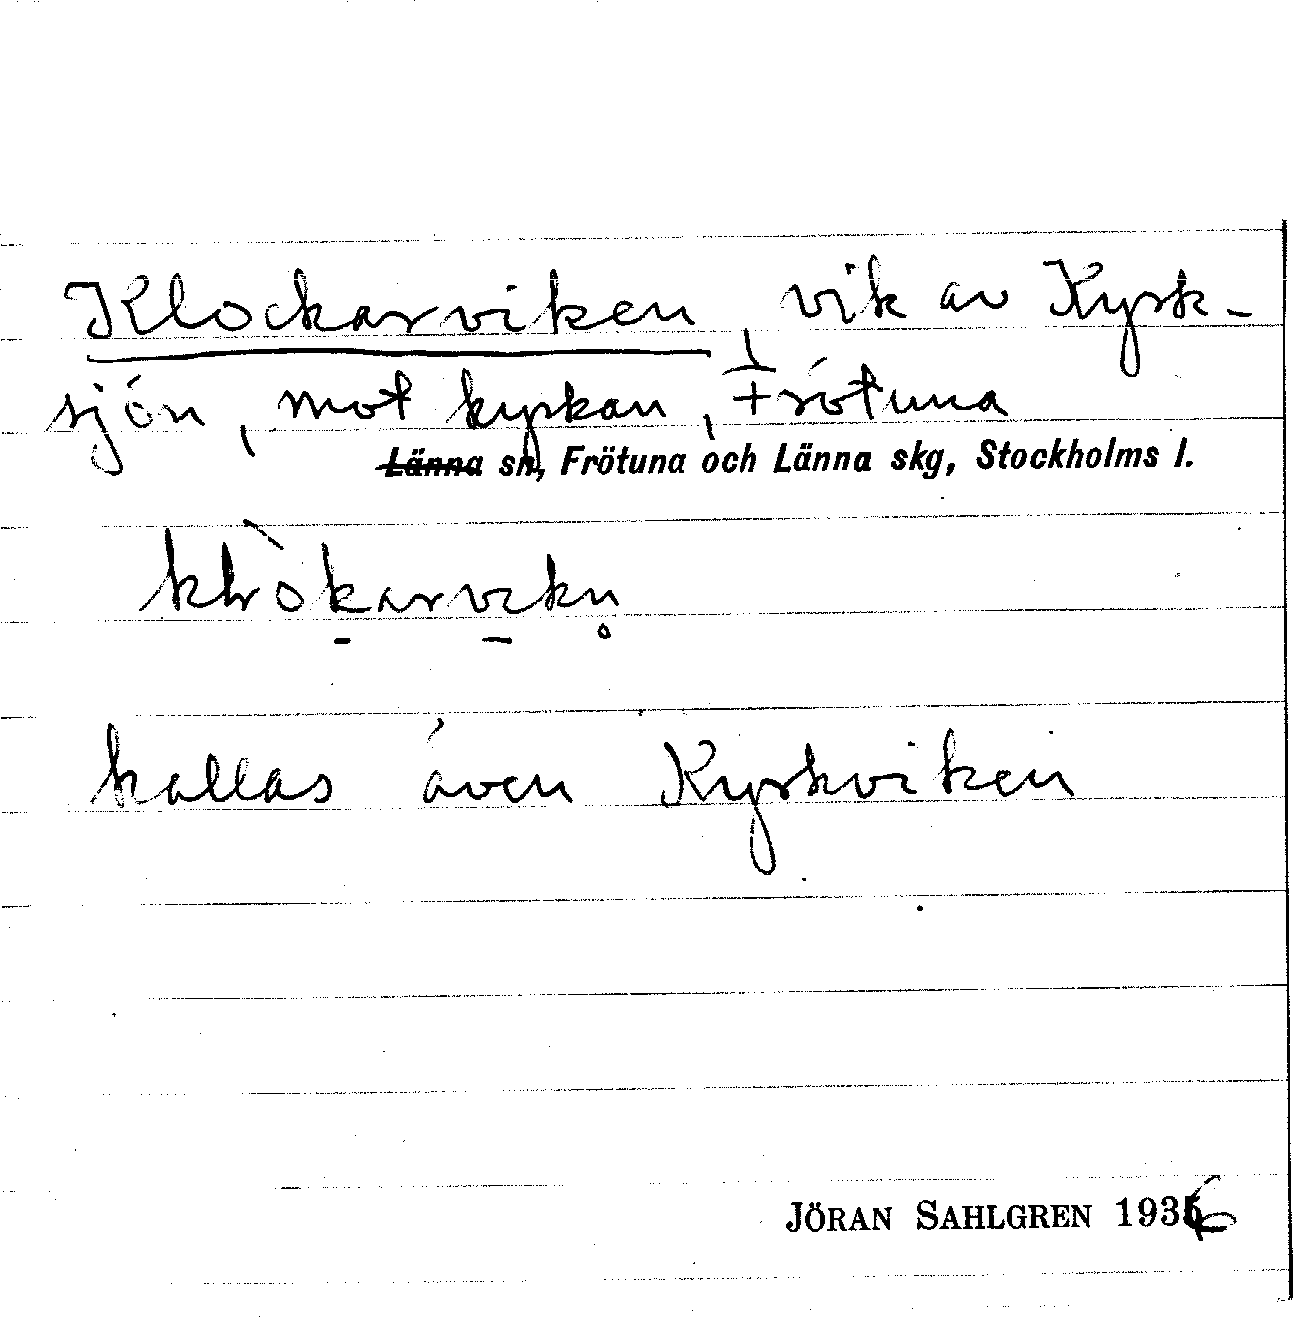 Klockarviken, vik av Kyrk-
sjön, mot kyrkan, Frötuna
Länna sn, Frötuna och Länna skg, Stockholms l.
kallas även Kyrkviken
JÖRAN SAHLGREN 1936